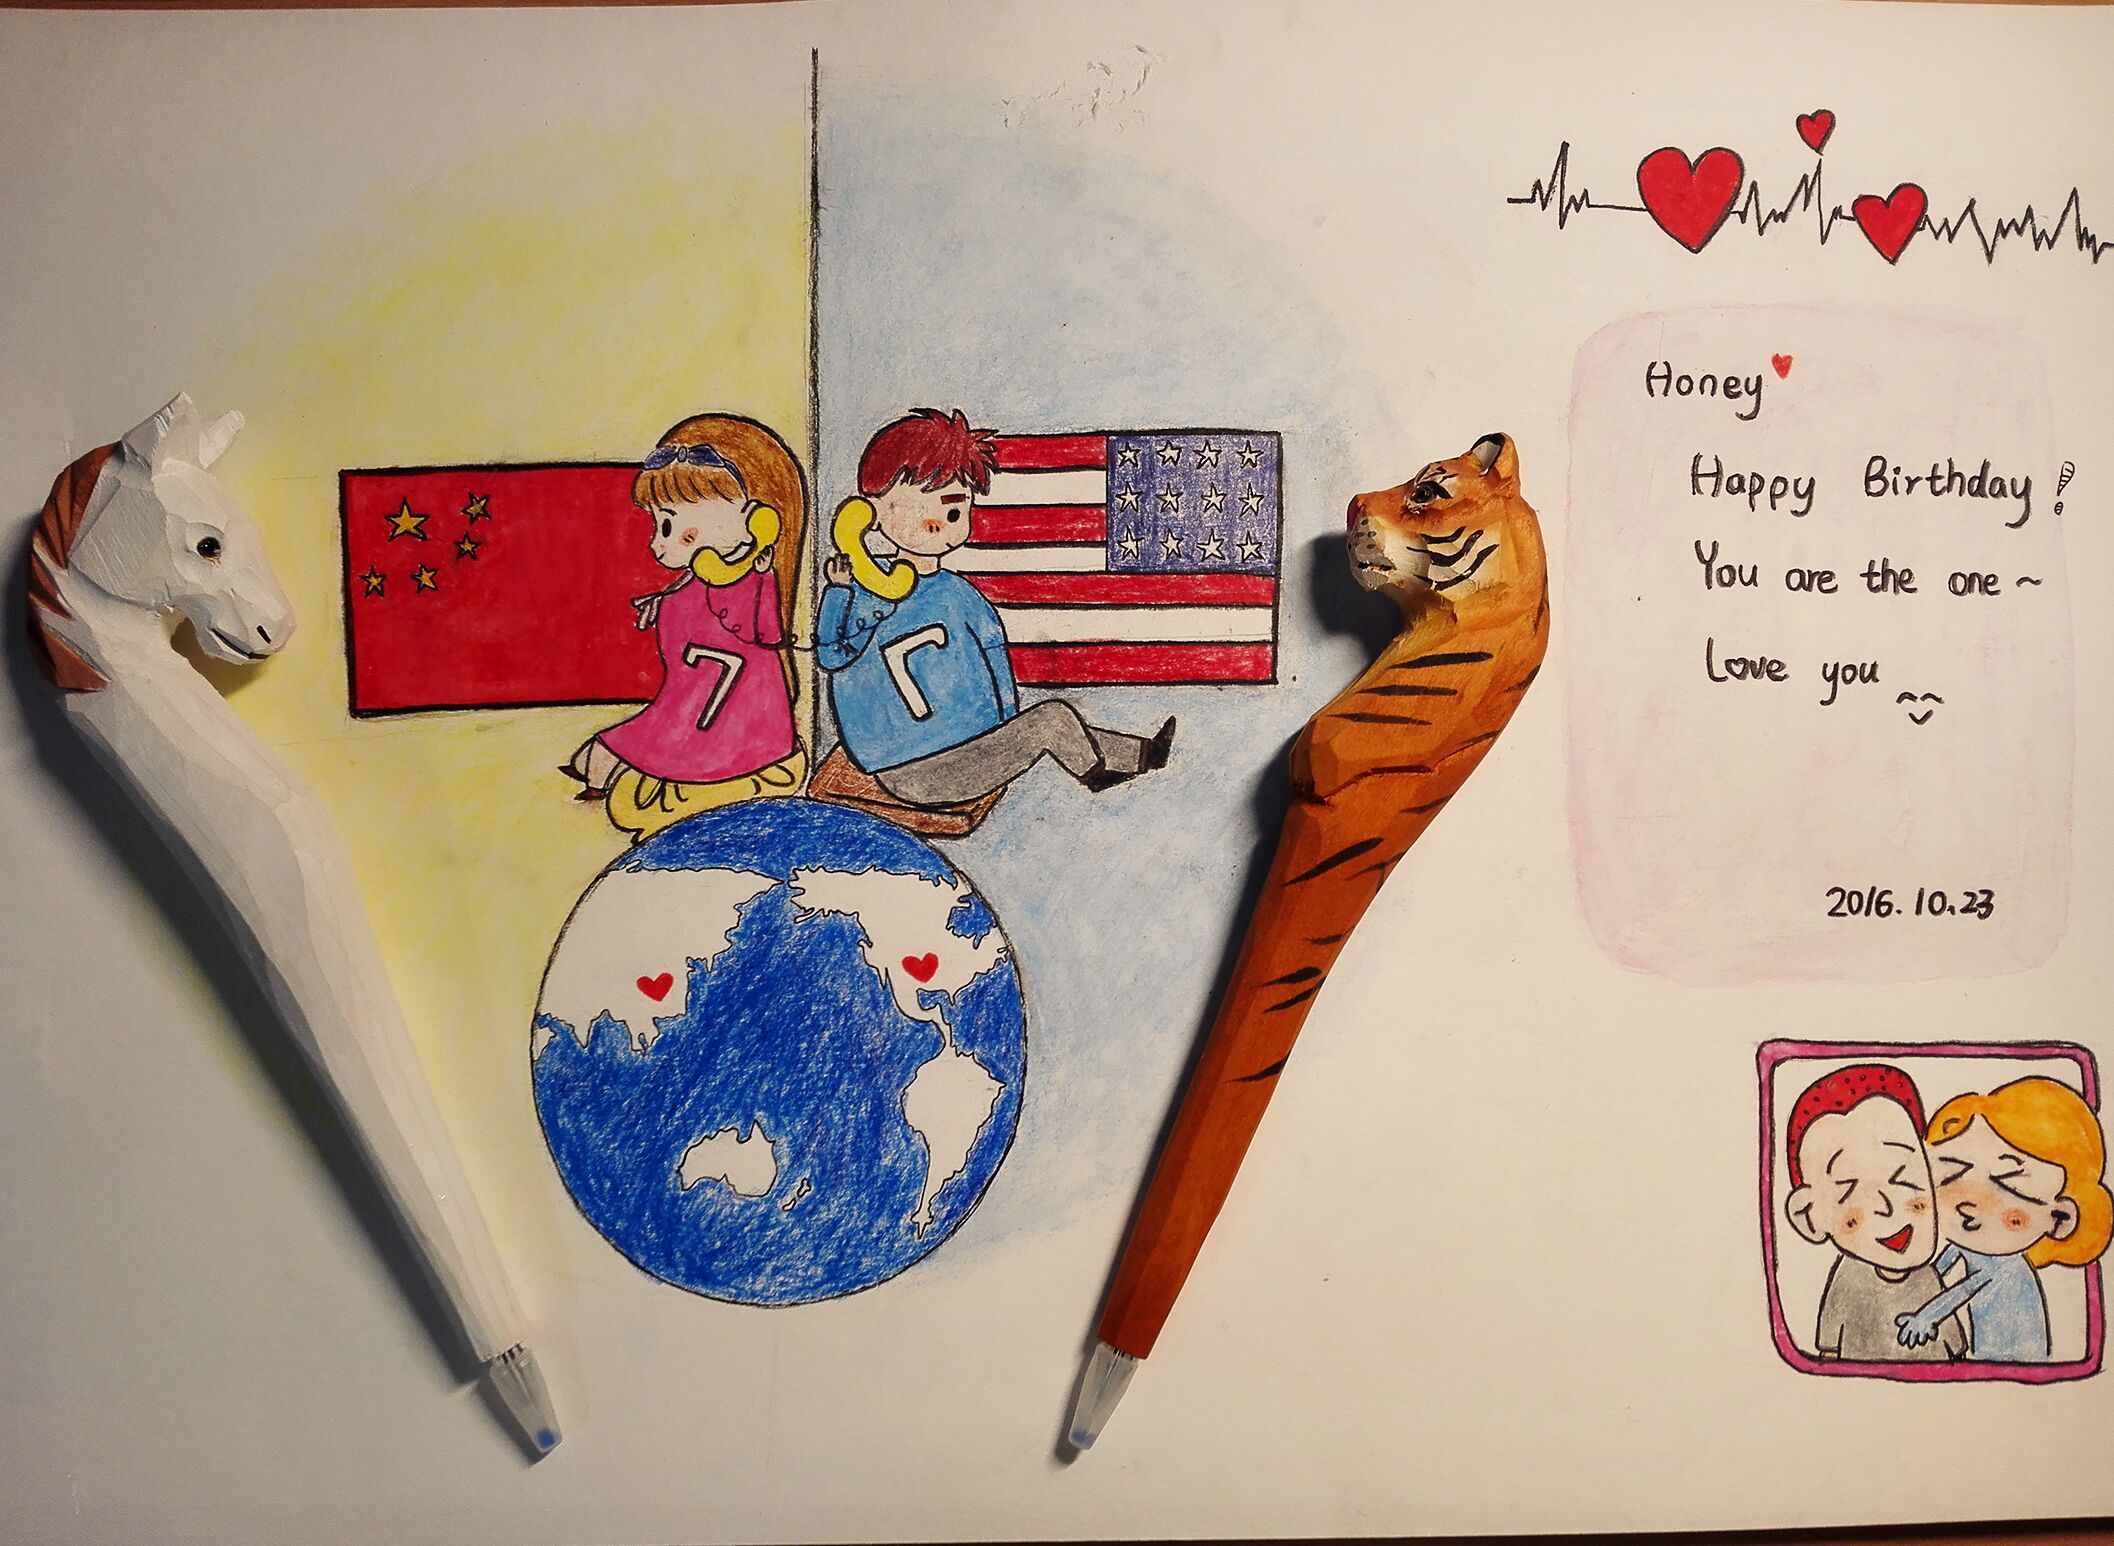 Honey
Happy Birthday!
You are the one~
Love you
2016.10.23